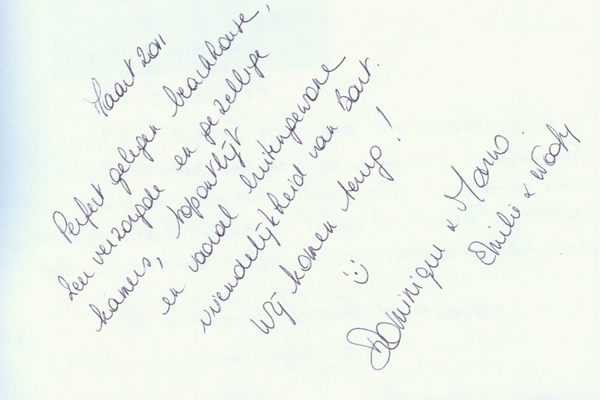 Maart 2011
Perfect gelegen beachhouse,
zeer verzorgde en gezellige
kamers, topontbijt
en vooral buitengewone
vriendelijkheid van Bart.
Wij komen terug!
:)
Dominique & Mario.
Emilie & Woody